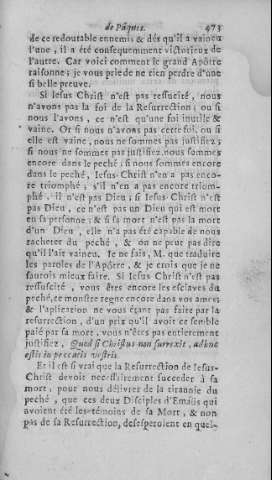 de Pâques. 473
de ce redoutable ennemi: & dés qu'il a vaincu
l'une, il a été consequemment victorieux de
l'autre. Car voici comment le grand Apôtre
raisonne; je vous prie de ne rien perdre d'une
si belle preuve.
Si Jesus Christ n'est pas ressucité, nous
n'avons pas la foi de la Resurrection; ou si
nous l'avons, ce n'est qu'une foi inutile &
vaine. Or si nous n'avons pas cette foi, ou si
elle est vaine, nous ne sommes pas justifiez;
si nous ne sommes pas justifiez, nous sommes
encore dans le peché; si nous sommes encore
dans le peché, Jesus-Christ n'en a pas enco-
re triomphé; s'il n'en a pas encore triom-
phé, il n'est pas Dieu; si Jesus-Christ n'est
pas Dieu, ce n'est pas un Dieu qui est mort
en sa personne; & si sa mort n'est pas la mort
d'un Dieu, elle n'a pas été capable de nous
racheter du peché, & on ne peut pas dire
qu'il l'ait vaincu. Je ne fais, M. que traduire
les paroles de l'Apôtre, & je crois que je ne
saurois mieux faire. Si Jesus Christ n'est pas
ressuscité, vous êtes encore les esclaves du
peché, ce monstre regne encore dans vos ames;
& l'aplication ne vous étant pas faite par la
resurrection, d'un prix qu'il avoit ce semble
paié par sa mort, vous n'êtes pas entierement
justifiez, Quod si Christus non surrexit, adhuc
estis in peccatis vestris.
Et il est si vrai que la Resurrection de Jesus-
Christ devoit necessairement succeder à sa
mort, pour nous délivrer de la tirannie du
peché, que ces deux Disciples d'Emaüs qui
avoient été les témoins de sa Mort, & non
pas de sa Resurrection, desesperoient en quel-